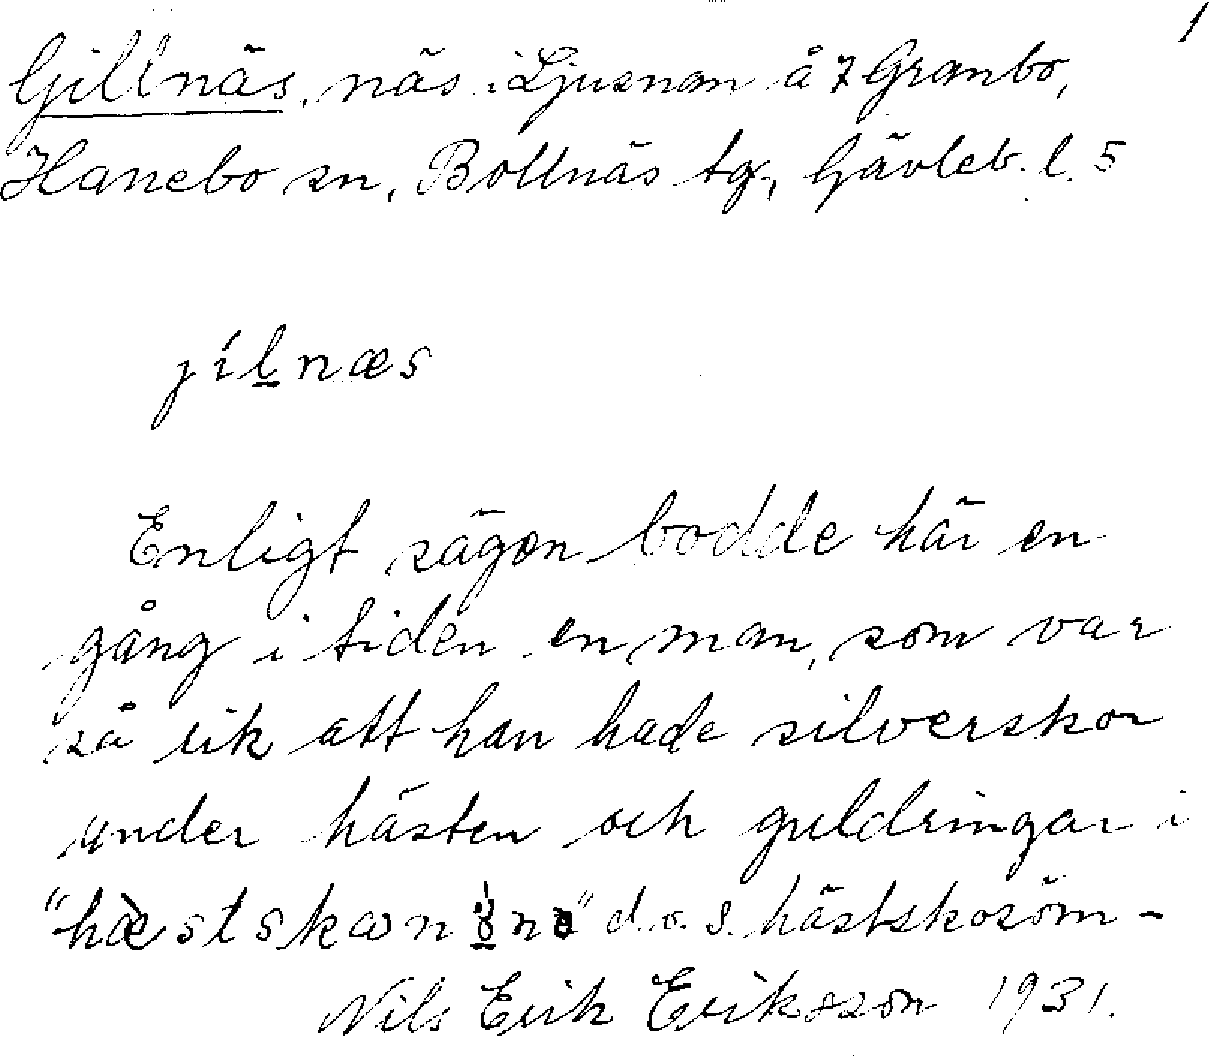 1
Gillnäs, näs i Ljusnan å 7 Granbo,
Hanebo sn, Bollnäs tg, Gävleb. l. 5
jílnæs
Enligt sägen bodde här en
gång i tiden en man, som var
så rik att han hade silverskor
under hästen och guldringar i
d.v.s. hästskosöm-
Nils Erik Eriksson 1931.